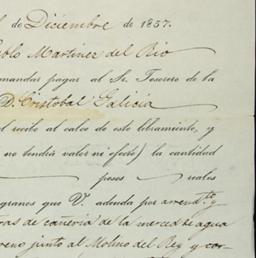 de Diciembre de 1857.
Pablo Martinez del Rio
mandar pagar al Sr. Tesorero de la
D. Cristobal Galicia
el recibo al calce de este libramiento, y
no tendrá valor ni efecto) la cantidad
pesos reales
granos que V. adeuda por arrendto. y
de cañeria de la merced de agua
junto al Molino del Rey y cor-